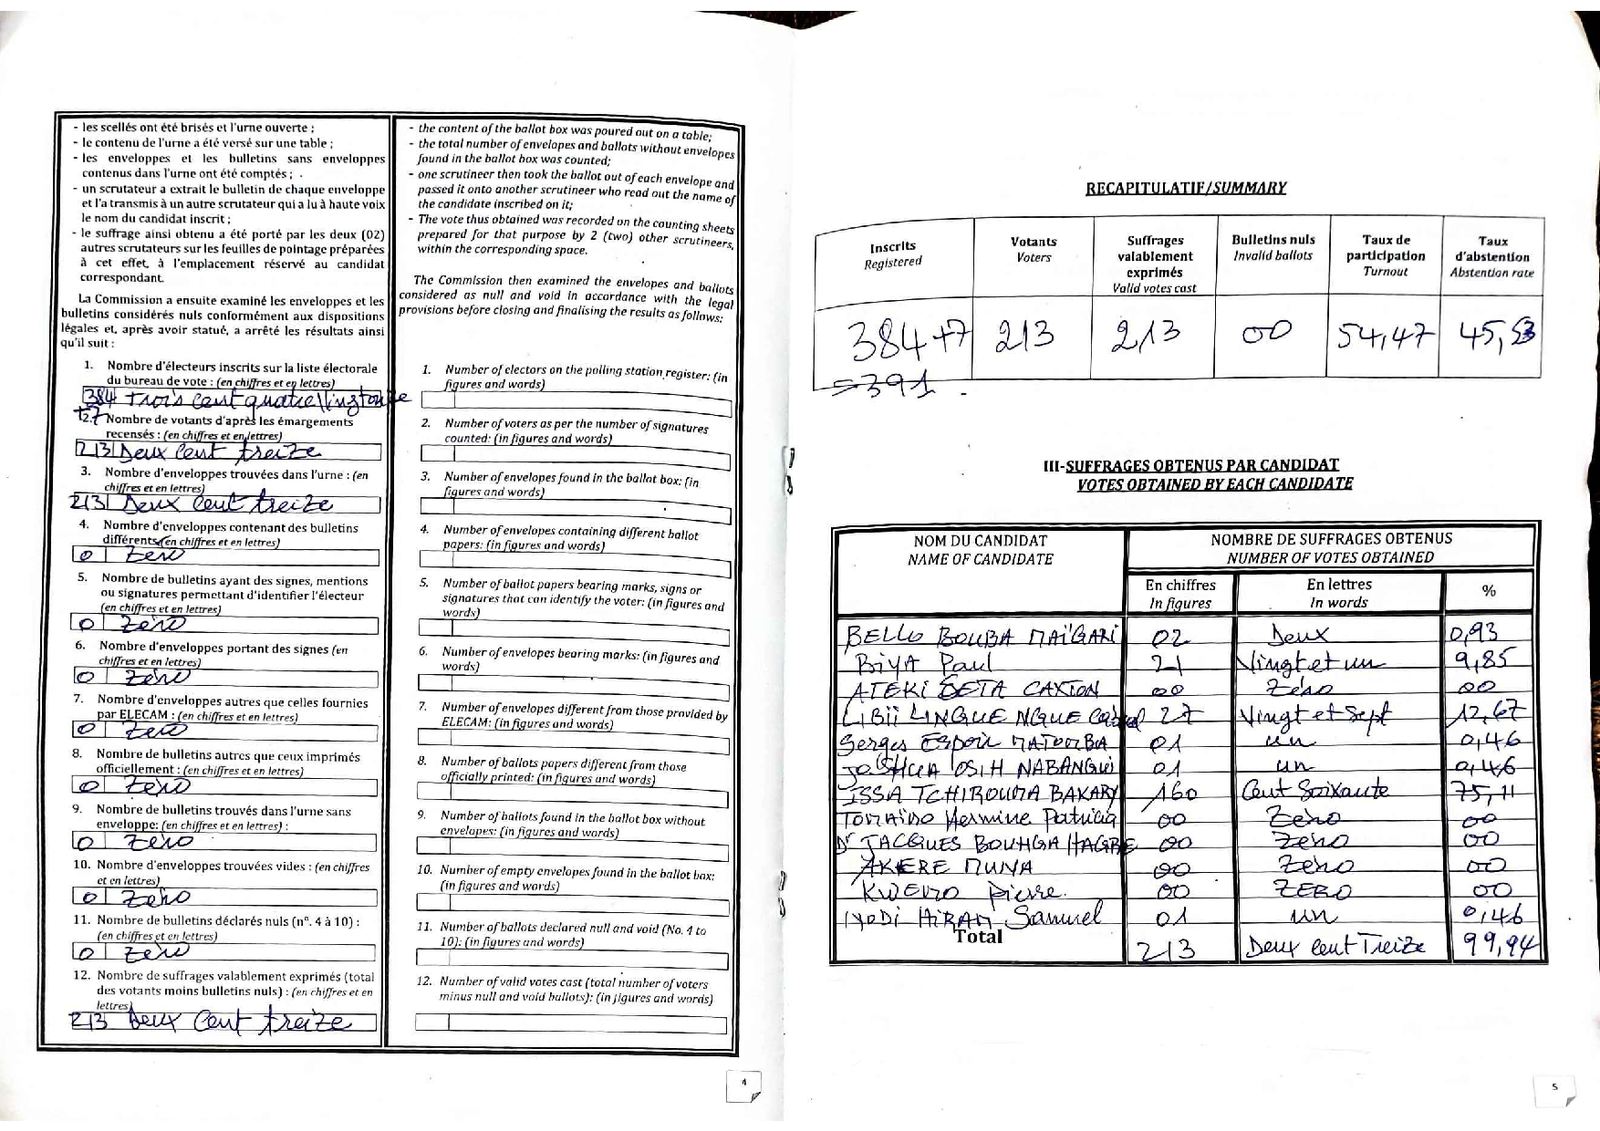 - les scellés ont été brisés et l'urne ouverte ;
- le contenu de l'urne a été versé sur une table ;
- les enveloppes et les bulletins sans enveloppes
contenus dans l'urne ont été comptés ;
- un scrutateur a extrait le bulletin de chaque enveloppe
et l'a transmis à un autre scrutateur qui a lu à haute voix
le nom du candidat inscrit ;
- le suffrage ainsi obtenu a été porté par les deux (02)
autres scrutateurs sur les feuilles de pointage préparées
à cet effet, à l'emplacement réservé au candidat
correspondant.
La Commission a ensuite examiné les enveloppes et les
bulletins considérés nuls conformément aux dispositions
légales et, après avoir statué, a arrêté les résultats ainsi
qu'il suit :
1. Nombre d'électeurs inscrits sur la liste électorale
du bureau de vote : (en chiffres et en lettres)
384 Trois cent quatre
+7
2. Nombre de votants d'après les émargements
recensés : (en chiffres et en lettres)
213 Deux cent treize
3. Nombre d'enveloppes trouvées dans l'urne : (en
chiffres et en lettres)
213 Deux cent treize
4. Nombre d'enveloppes contenant des bulletins
différents (en chiffres et en lettres)
0 Zéro
5. Nombre de bulletins ayant des signes, mentions
ou signatures permettant d'identifier l'électeur
(en chiffres et en lettres)
0 Zéro
6. Nombre d'enveloppes portant des signes (en
chiffres et en lettres)
0 Zéro
7. Nombre d'enveloppes autres que celles fournies
par ELECAM : (en chiffres et en lettres)
0 Zéro
8. Nombre de bulletins autres que ceux imprimés
officiellement : (en chiffres et en lettres)
0 Zéro
9. Nombre de bulletins trouvés dans l'urne sans
enveloppe: (en chiffres et en lettres) :
0 Zéro
10. Nombre d'enveloppes trouvées vides : (en chiffres
et en lettres)
0 Zéro
11. Nombre de bulletins déclarés nuls (n°. 4 à 10) :
(en chiffres et en lettres)
0 Zéro
12. Nombre de suffrages valablement exprimés (total
des votants moins bulletins nuls) : (en chiffres et en
lettres)
213 Deux cent treize
- the content of the ballot box was poured out on a table;
- the total number of envelopes and ballots without envelopes
found in the ballot box was counted;
- one scrutineer then took the ballot out of each envelope and
passed it onto another scrutineer who read out the name of
the candidate inscribed on it;
- The vote thus obtained was recorded on the counting sheets
prepared for that purpose by 2 (two) other scrutineers,
within the corresponding space.
The Commission then examined the envelopes and ballots
considered as null and void in accordance with the legal
provisions before closing and finalising the results as follows:
1. Number of electors on the polling station register: (in
figures and words)
2. Number of voters as per the number of signatures
counted: (in figures and words)
3. Number of envelopes found in the ballot box: (in
figures and words)
4. Number of envelopes containing different ballot
papers: (in figures and words)
5. Number of ballot papers bearing marks, signs or
signatures that can identify the voter: (in figures and
words)
6. Number of envelopes bearing marks: (in figures and
words)
7. Number of envelopes different from those provided by
ELECAM: (in figures and words)
8. Number of ballots papers different from those
officially printed: (in figures and words)
9. Number of ballots found in the ballot box without
envelopes: (in figures and words)
10. Number of empty envelopes found in the ballot box:
(in figures and words)
11. Number of ballots declared null and void (No. 4 to
10): (in figures and words)
12. Number of valid votes cast (total number of voters
minus null and void ballots): (in figures and words)
4
RECAPITULATIF/SUMMARY
Inscrits Registered Votants Voters Suffrages valablement exprimés Valid votes cast Bulletins nuls Invalid ballots Taux de participation Turnout Taux d'abstention Abstention rate
384+7 213 213 00 54,47 45,53
=391
III-SUFFRAGES OBTENUS PAR CANDIDAT
VOTES OBTAINED BY EACH CANDIDATE
NOM DU CANDIDAT NOMBRE DE SUFFRAGES OBTENUS
NAME OF CANDIDATE NUMBER OF VOTES OBTAINED
En chiffres En lettres %
In figures In words
BELLO BOUBA MAÏGARI 02 Deux 0,93
BIYA Paul 21 Vingt et un 9,85
ATEKI SETA CAXTON 00 Zéro 00
LIBII LI NGUE NGUE Cabral 27 Vingt et Sept 12,67
Serges Espoir MATOMBA 01 un 0,46
JOSHUA OSIH NABANGUI 01 un 0,46
ISSA TCHIROUMA BAKARY 160 Cent Soixante 75,11
TOMAÏNO Hermine Patricia 00 Zéro 00
Dr JACQUES BOUHGA HAGBE 00 Zéro 00
AKERE MUNA 00 Zéro 00
KWEMO pierre 00 ZERO 00
IYODI HIRAM Samuel 01 un 0,46
Total 213 Deux cent Treize 99,94
5